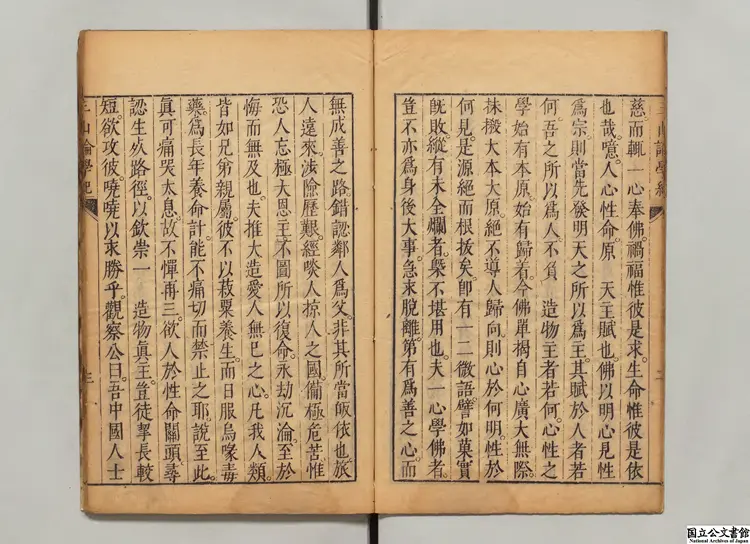 三山論學紀 二
慈。而輒一心奉佛。禍福惟彼是求。生命惟彼是依
也哉。噫。人心性命原 天主賦也。佛以明心見性
爲宗。則當先發明天之所以爲主。其賦於人者若
何。吾之所以爲人。不負 造物主者若何。心性之
學。始有本原。始有歸着。今佛單揭自心。廣大無際。
抹摋大本大原。絕不導人歸向。則心於何明。性於
何見。是源絕而根拔矣。卽有一二微語。譬如菓實
旣敗。縱有未全爛者。槩不堪用也。夫一心學佛者。
豈不亦爲身後大事。急求脫離。第有爲善之心。而
無成善之路。錯認鄰人爲父。非其所當皈依也。旅
人遠來。涉險歷艱。經啖人掠人之國。備極危苦。惟
恐人忘極大恩主。不圖所以復命。永劫沉淪。至於
悔而無及也。夫推大造愛人無已之心。凡我人類。
皆如兄弟親屬。彼不以菽粟養生。而日服烏喙毒
藥。爲長年養命計。能不痛切而禁止之耶。說至此。
眞可痛哭太息。故不憚再三。欲人於性命關頭。尋
認生死路徑。以欽崇一 造物眞主。豈徒挈長較
短。欲攻彼嘵嘵以求勝乎。觀察公曰。吾中國人士
三山論學紀 三
国立公文書館
National Archives of Japan